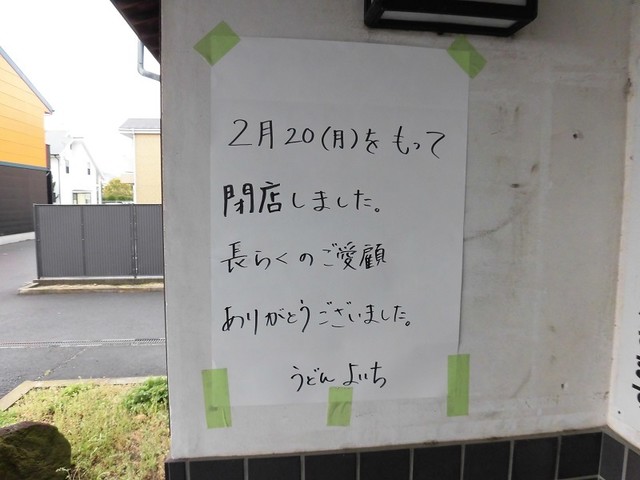 2月20(月)をもって
閉店しました。
長らくのご愛顧
ありがとうございました。
うどん よいち